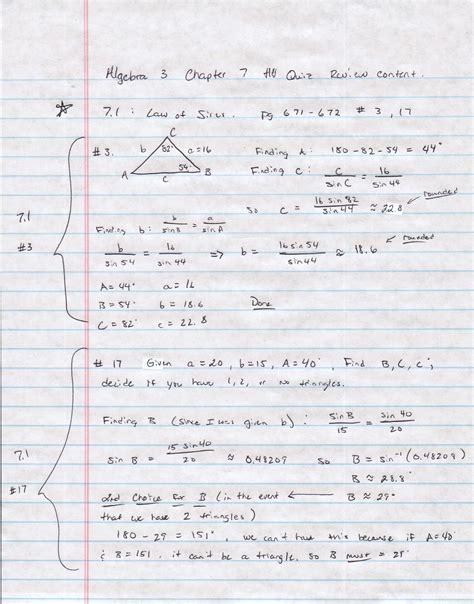 Algebra 3 Chapter 7 Quiz Review content.
☆ 7.1 : Law of Sines. pg 671-672 # 3, 17
7.1
#3
#3.
C
82°
b a=16
54°
A B
C
Finding A: 180-82-54 = 44°
Finding C: C / sin C = 16 / sin 44
so C = 16 sin 82 / sin 44 ≈ 22.8 ← rounded
Finding b: b / sin B = a / sin A
b / sin 54 = 16 / sin 44 => b = 16 sin 54 / sin 44 ≈ 18.6 ← rounded
A = 44° a = 16
B = 54° b = 18.6 Done
C = 82° c = 22.8
7.1
#17
# 17 Given a = 20, b = 15, A = 40°, Find B, C, c;
decide if you have 1, 2, or no triangles.
Finding B (since I was given b): sin B / 15 = sin 40 / 20
sin B = 15 sin 40 / 20 ≈ 0.48209 so B = sin⁻¹(0.48209)
B ≈ 28.8°
2nd Choice for B (in the event ← B ≈ 29°
that we have 2 triangles)
180 - 29 = 151°, we can't have this because if A = 40°
& B = 151, it can't be a triangle. so B must = 29°